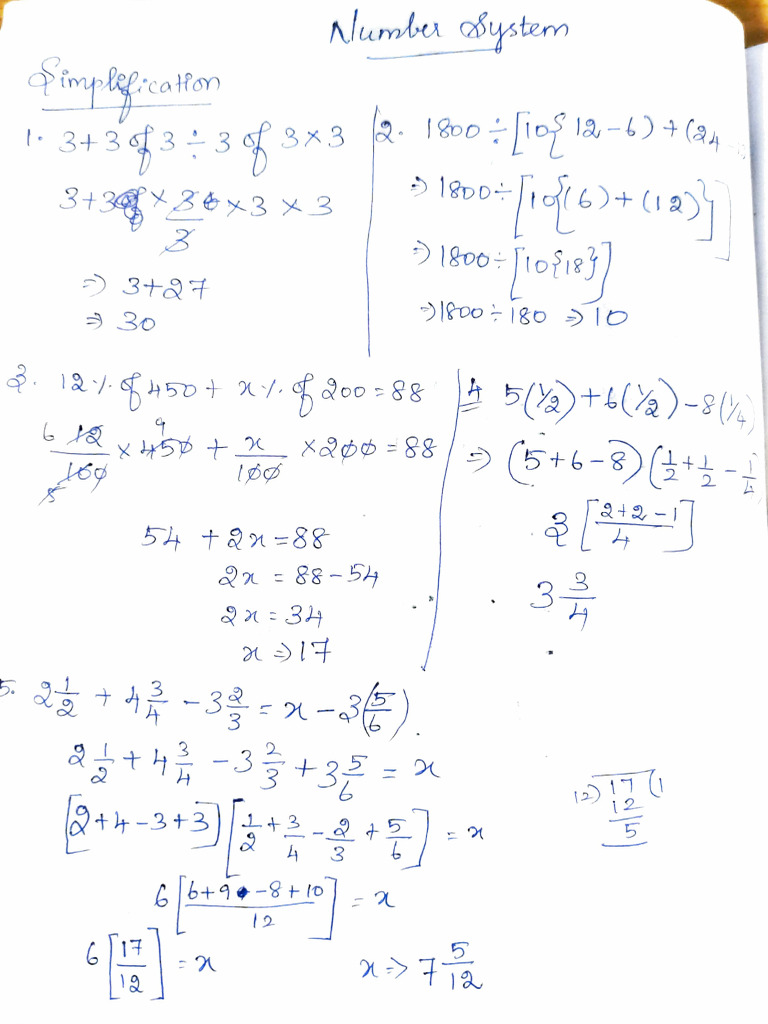 Number System
Simplification
1. 3+3 of 3 ÷ 3 of 3 × 3
3+3 × 3/3 × 3 × 3
⇒ 3+27
⇒ 30
2. 1800 ÷ [10{ 12-6) + (24
⇒ 1800 ÷ [10{(6)+(12)}]
⇒ 1800 ÷ [10{18}]
⇒ 1800 ÷ 180 ⇒ 10
3. 12% of 450 + x% of 200 = 88
6 12/100 5 × 9 450 + x/100 × 200 = 88
54 + 2x = 88
2x = 88-54
2x = 34
x ⇒ 17
4 5(1/2) + 6(1/2) - 8(1/4)
⇒ (5+6-8) (1/2 + 1/2 - 1/4
3 [2+2-1/4]
3 3/4
5. 2 1/2 + 4 3/4 - 3 2/3 = x - 3(5/6)
2 1/2 + 4 3/4 - 3 2/3 + 3 5/6 = x
[2+4-3+3] [1/2 + 3/4 - 2/3 + 5/6] = x
6 [6+9-8+10/12] = x
6 [17/12] = x
x ⇒ 7 5/12
12) 17 (1
12
5